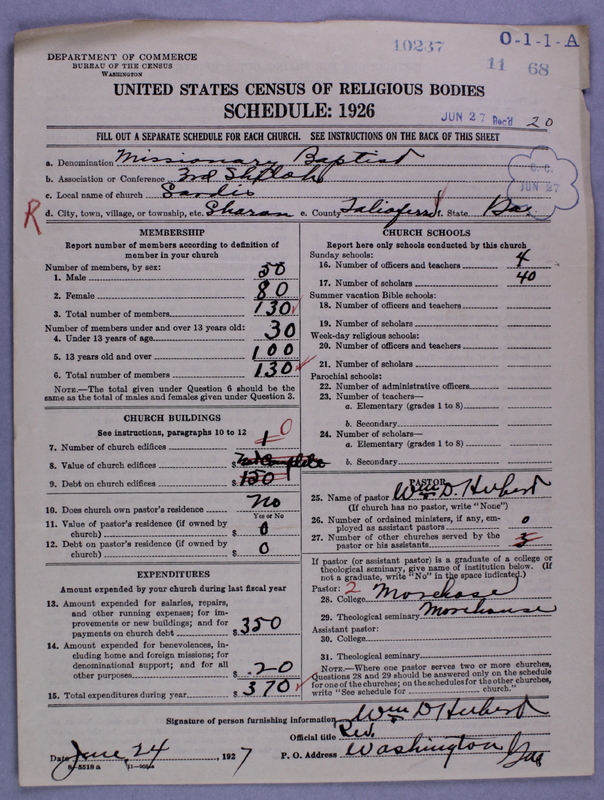 DEPARTMENT OF COMMERCE
BUREAU OF THE CENSUS
WASHINGTON
10237
O-1-1-A
11 68
UNITED STATES CENSUS OF RELIGIOUS BODIES
SCHEDULE: 1926
JUN 27 Rec'd 20
FILL OUT A SEPARATE SCHEDULE FOR EACH CHURCH. SEE INSTRUCTIONS ON THE BACK OF THIS SHEET
a. Denomination Missionary Baptist
b. Association or Conference 3rd Shiloh
c. Local name of church Sardis
JUN 27
R
d. City, town, village, or township, etc. Sharon e. County Taliaferro f. State Ga.
MEMBERSHIP
Report number of members according to definition of
member in your church
Number of members, by sex:
1. Male 50
2. Female 80
3. Total number of members 130
Number of members under and over 13 years old:
4. Under 13 years of age 30
5. 13 years old and over 100
6. Total number of members 130
NOTE.—The total given under Question 6 should be
same as the total of males and females given under Question 3.
CHURCH BUILDINGS
See instructions, paragraphs 10 to 12
7. Number of church edifices 1 0
8. Value of church edifices $ Not Complete
9. Debt on church edifices $ 150
10. Does church own pastor's residence no
Yes or No
11. Value of pastor's residence (if owned by
church) $ 0
12. Debt on pastor's residence (if owned by
church) $ 0
EXPENDITURES
Amount expended by your church during last fiscal year
13. Amount expended for salaries, repairs,
and other running expenses; for im-
provements or new buildings; and for
payments on church debt $ 350
14. Amount expended for benevolences, in-
cluding home and foreign missions; for
denominational support; and for all
other purposes $ 20
15. Total expenditures during year $ 370
CHURCH SCHOOLS
Report here only schools conducted by this church
Sunday schools:
16. Number of officers and teachers 4
17. Number of scholars 40
Summer vacation Bible schools:
18. Number of officers and teachers
19. Number of scholars
Week-day religious schools:
20. Number of officers and teachers
21. Number of scholars
Parochial schools:
22. Number of administrative officers
23. Number of teachers—
a. Elementary (grades 1 to 8)
b. Secondary
24. Number of scholars—
a. Elementary (grades 1 to 8)
b. Secondary
PASTOR
25. Name of pastor Wm D. Hubert
(If church has no pastor, write "None")
26. Number of ordained ministers, if any, em-
ployed as assistant pastors 0
27. Number of other churches served by the
pastor or his assistants 3
If pastor (or assistant pastor) is a graduate of a college or
theological seminary, give name of institution below. (If
not a graduate, write "No" in the space indicated.)
Pastor: 2
28. College Morehose
29. Theological seminary Morehouse
Assistant pastor:
30. College
31. Theological seminary
NOTE.—Where one pastor serves two or more churches,
Questions 28 and 29 should be answered only on the schedule
for one of the churches; on the schedules for the other churches,
write "See schedule for church."
Signature of person furnishing information Wm D Hubert
Official title Rev.
Date June 24, 1927 P. O. Address Washington Ga
8—5518 a